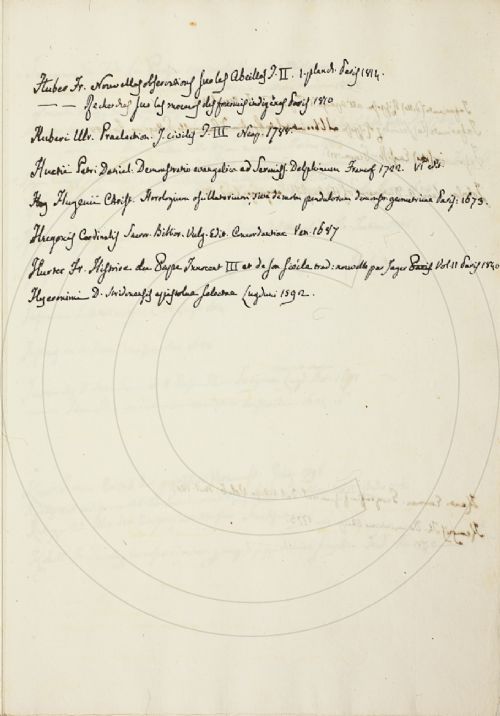 Huber Fr. Nouvelles observations sur les Abeilles T. II. 1. planch. Paris 1814.
— — Recherches sur les moeurs des fourmis indigènes Paris 1810
Huberi Ulr. Praelection. J. civilis T. III Neap. 1788.
Huetii Petri Daniel. Demonstratio evangelica ad Sereniss. Delphinum Francf. 1722.
Hugenii Christ. Horologium oscillatorium, sive de motu pendulorum demonstr. geometricae Paris: 1673.
Hugonis Cardinalis Sacror. Biblior. Vulg. Edit. Concordantiae Ven. 1687
Hurter Fr. Histoire du Pape Innocent III et de son siècle trad: nouvelle par Jager Vol. II Paris 1840
Hyeronimi D. Stridonensis epistolae selectae Lugduni 1592.